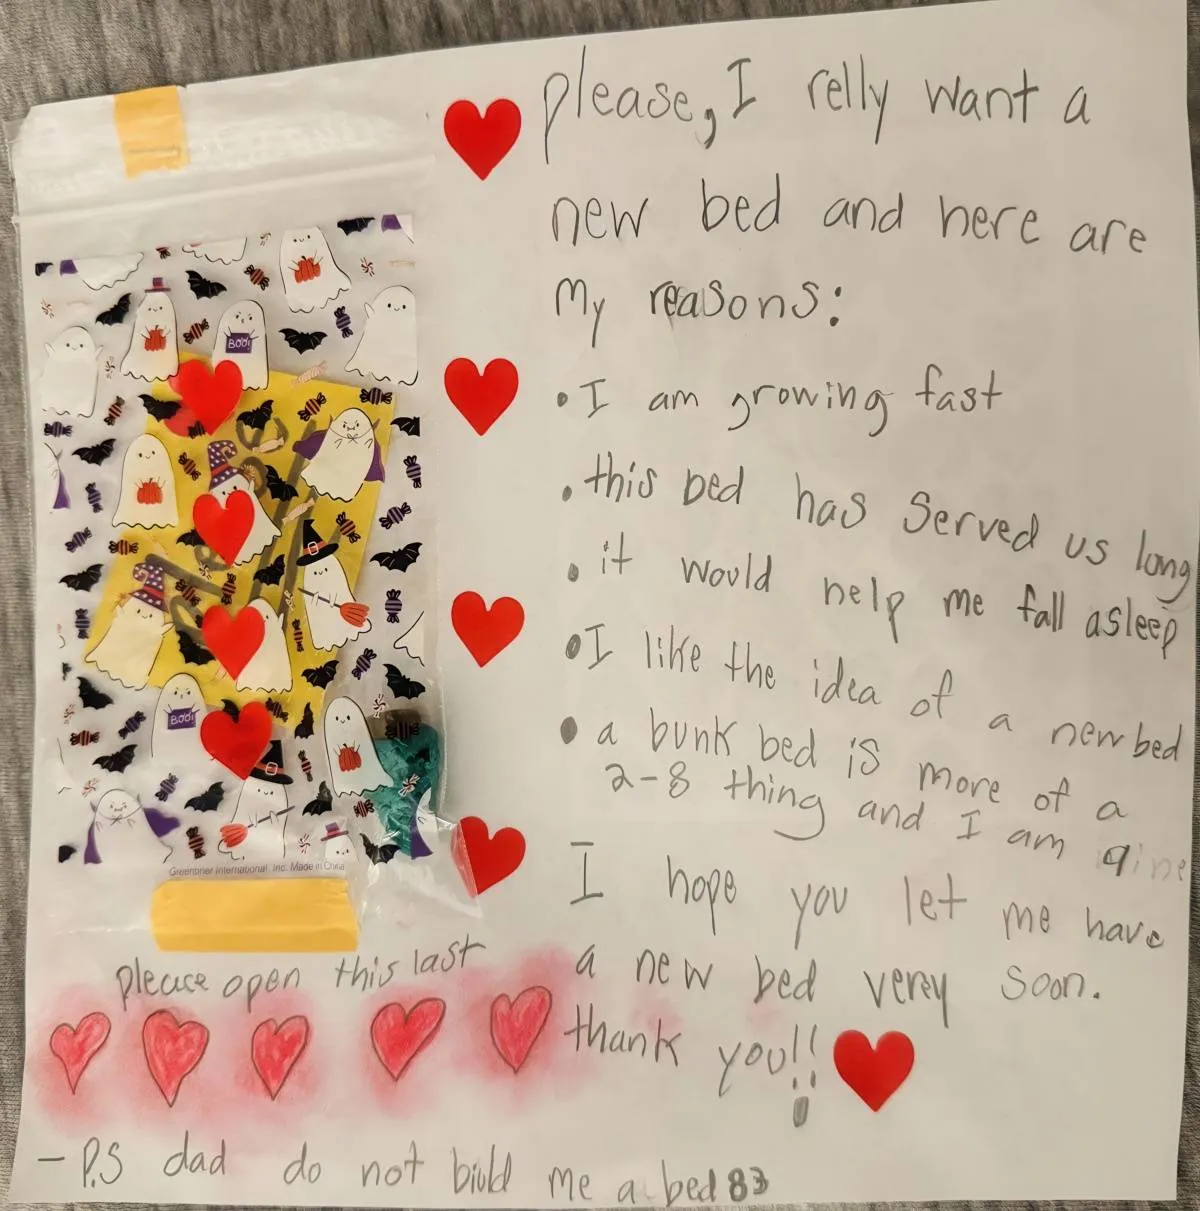 please, I relly want a
new bed and here are
My reasons:
• I am growing fast
• this bed has served us long
• it would help me fall asleep
• I like the idea of a new bed
• a bunk bed is more of a
2-8 thing and I am 9ine
I hope you let me have
a new bed verey soon.
thank you!!
BOO!
BOO!
Greenbrier International, Inc. Made in China
please open this last
- P.S dad do not biuld me a bed 83